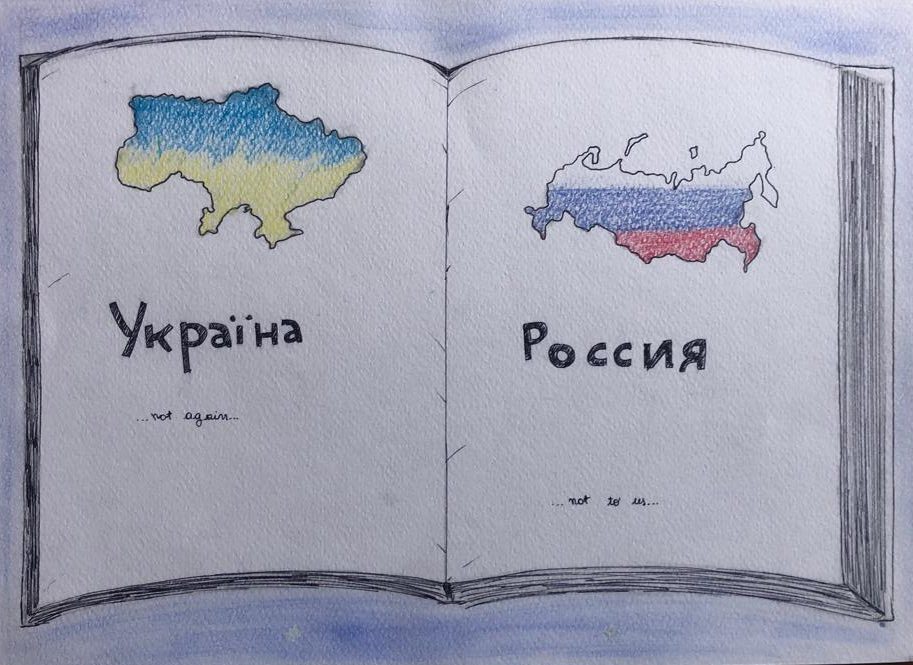 Україна
...not again...
Россия
...not to us...